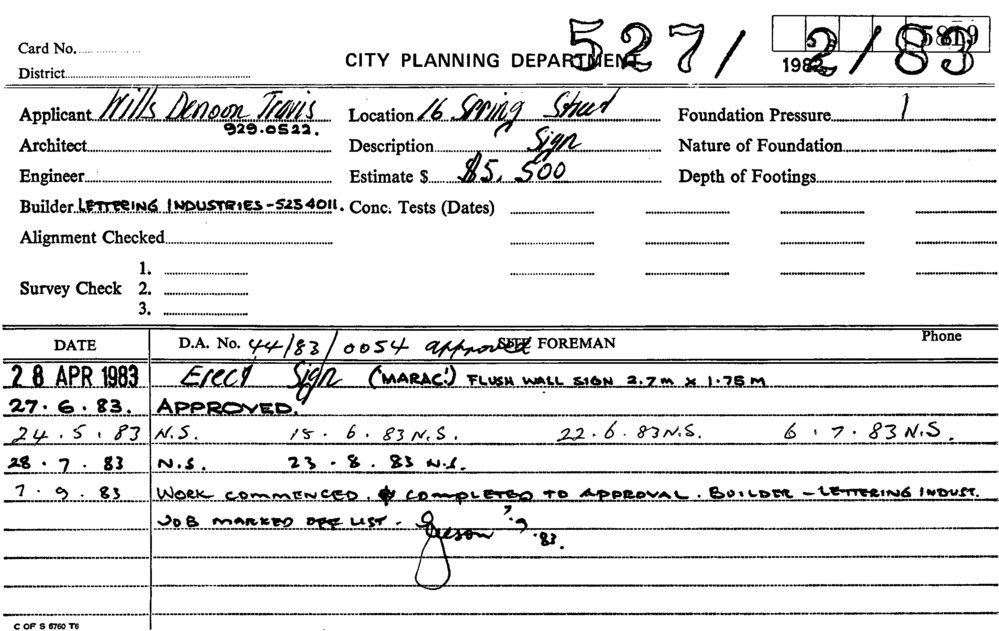 Card No.
5819
527/2/83
CITY PLANNING DEPARTMENT
198
District
Applicant Wills Denoon Travis Location 16 Spring Street Foundation Pressure
929.0522.
Architect Description Sign Nature of Foundation
Engineer Estimate $ $5,500 Depth of Footings
Builder LETTERING INDUSTRIES - 5234011. Conc. Tests (Dates)
Alignment Checked
1.
Survey Check 2.
3.
DATE D.A. No. 44/83/0054 approved SITE FOREMAN Phone
28 APR 1983 Erect Sign ('MARAC') FLUSH WALL SIGN 2.7m x 1.75m
27.6.83. APPROVED.
24.5.83 N.S. 15.6.83 N.S. 22.6.83 N.S. 6.7.83 N.S.
28.7.83 N.S. 23.8.83 N.S.
7.9.83 WORK COMMENCED. & COMPLETED TO APPROVAL. BUILDER - LETTERING INDUST.
JOB MARKED OFF LIST. 7.9.83.
C OF S 6760 T6